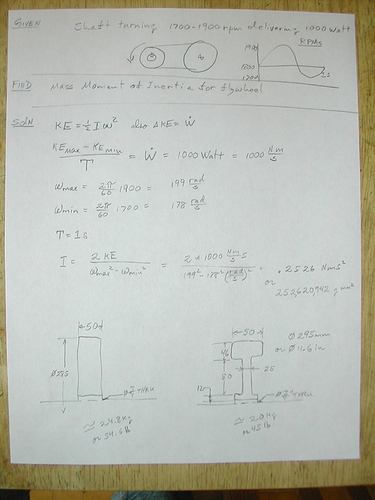 GIVEN Shaft turning 1700-1900 rpm delivering 1000 Watt
RPMs
1900
1800
1700
1s
FIND Mass Moment of Inertia for flywheel
SOLN KE = ½ I ω² also ΔKE = Ẇ
KEmax - KEmin / T = Ẇ = 1000 Watt = 1000 Nm/s
ωmax = 2π/60 1900 = 199 rad/s
ωmin = 2π/60 1700 = 178 rad/s
T = 1s
I = 2 KE / ωmax² - ωmin² = 2 * 1000 Nm/s s / 199² - 178² (rad/s)² = .2526 Nms²
or
252,620,942 g mm²
50
Ø295
THRU
≈ 24.8 Kg
or 54.6 lb
50
Ø295mm
or Ø11.6 in
25
80
12
THRU
≈ 20 Kg
or 45 lb